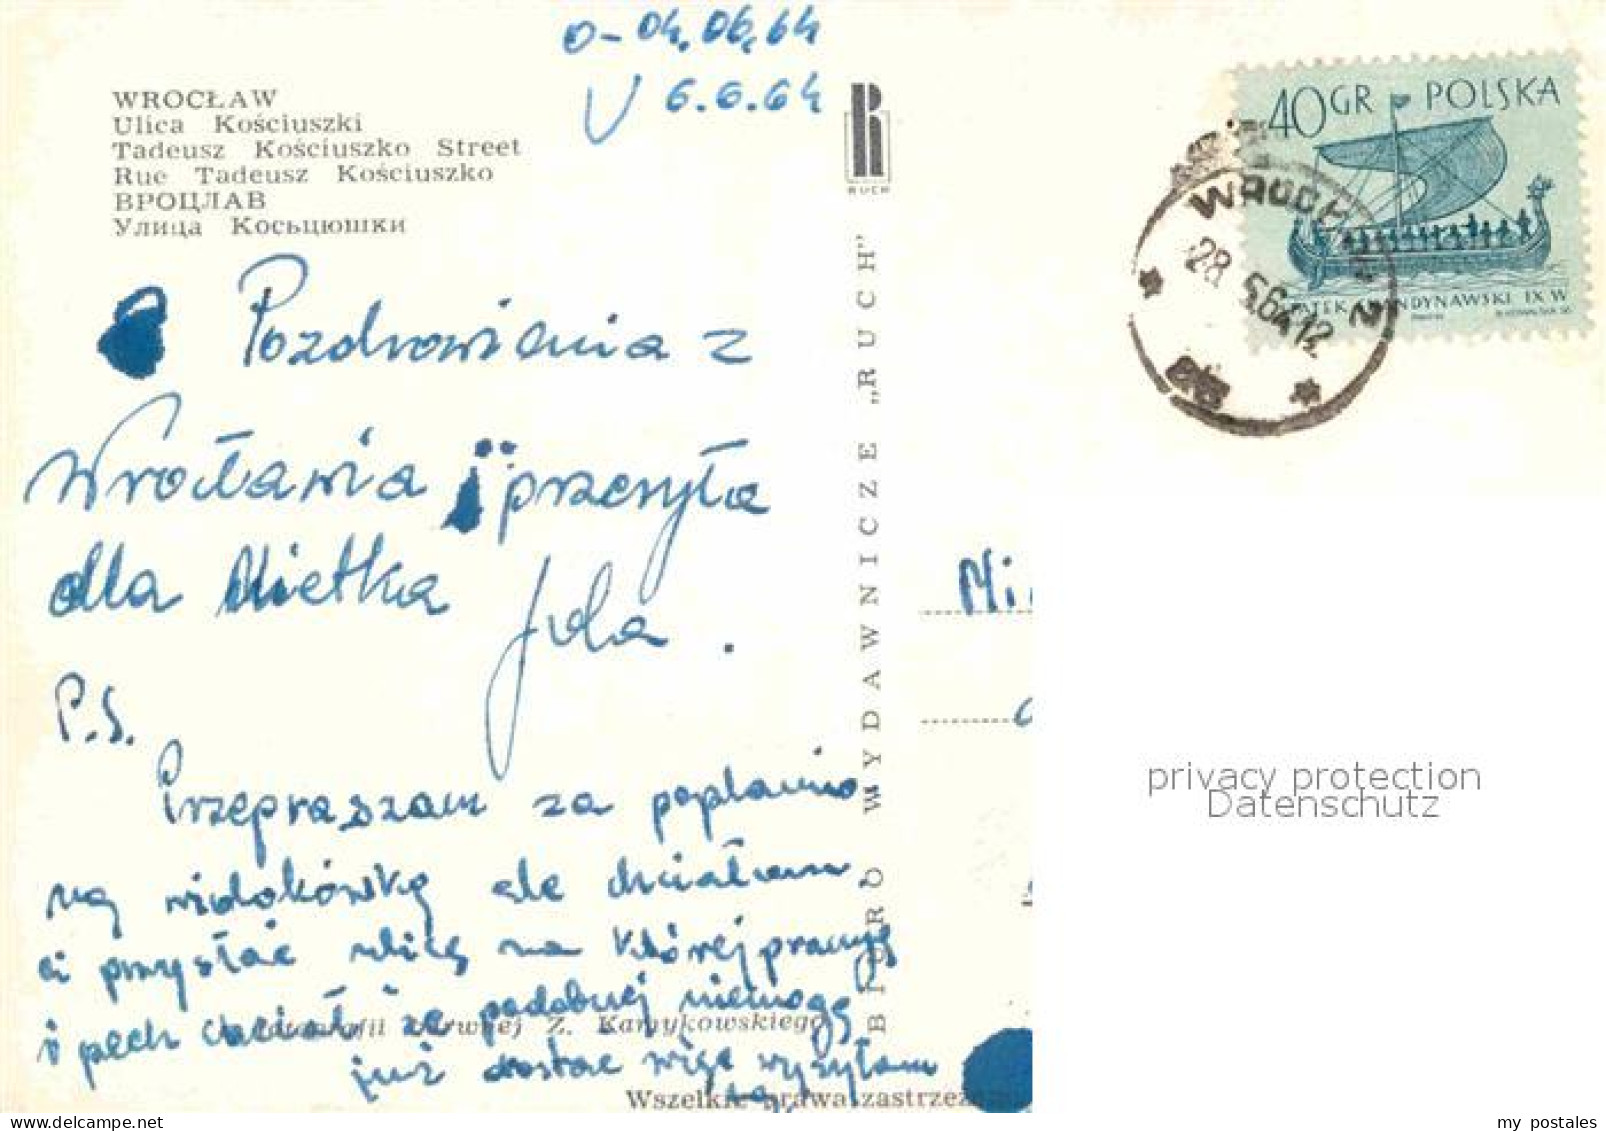 0-04.06.64
V 6.6.64
WROCŁAW
Ulica Kościuszki
Tadeusz Kościuszko Street
Rue Tadeusz Kościuszko
ВРОЦЛАВ
Улица Косьцюшки
RUCH
BIURO WYDAWNICZE „RUCH"
40GR POLSKA
STATEK SKANDYNAWSKI IX W
WROCŁAW 2
28.5.64 12
Pozdrowienia z
Wrocławia przesyła
dla Mietka Jola.
P.S.
Przepraszam za poplamio
ną widokówkę ale chciałam
ci przysłać ulicę na której pracuję
i pech chciał że podobnej niemogę
już dostać więc wysyłam
tę.
Z. Kamykowskiego
Wszelkie prawa zastrzeżone
Mi
privacy protection
Datenschutz
my-postales.com
my postales